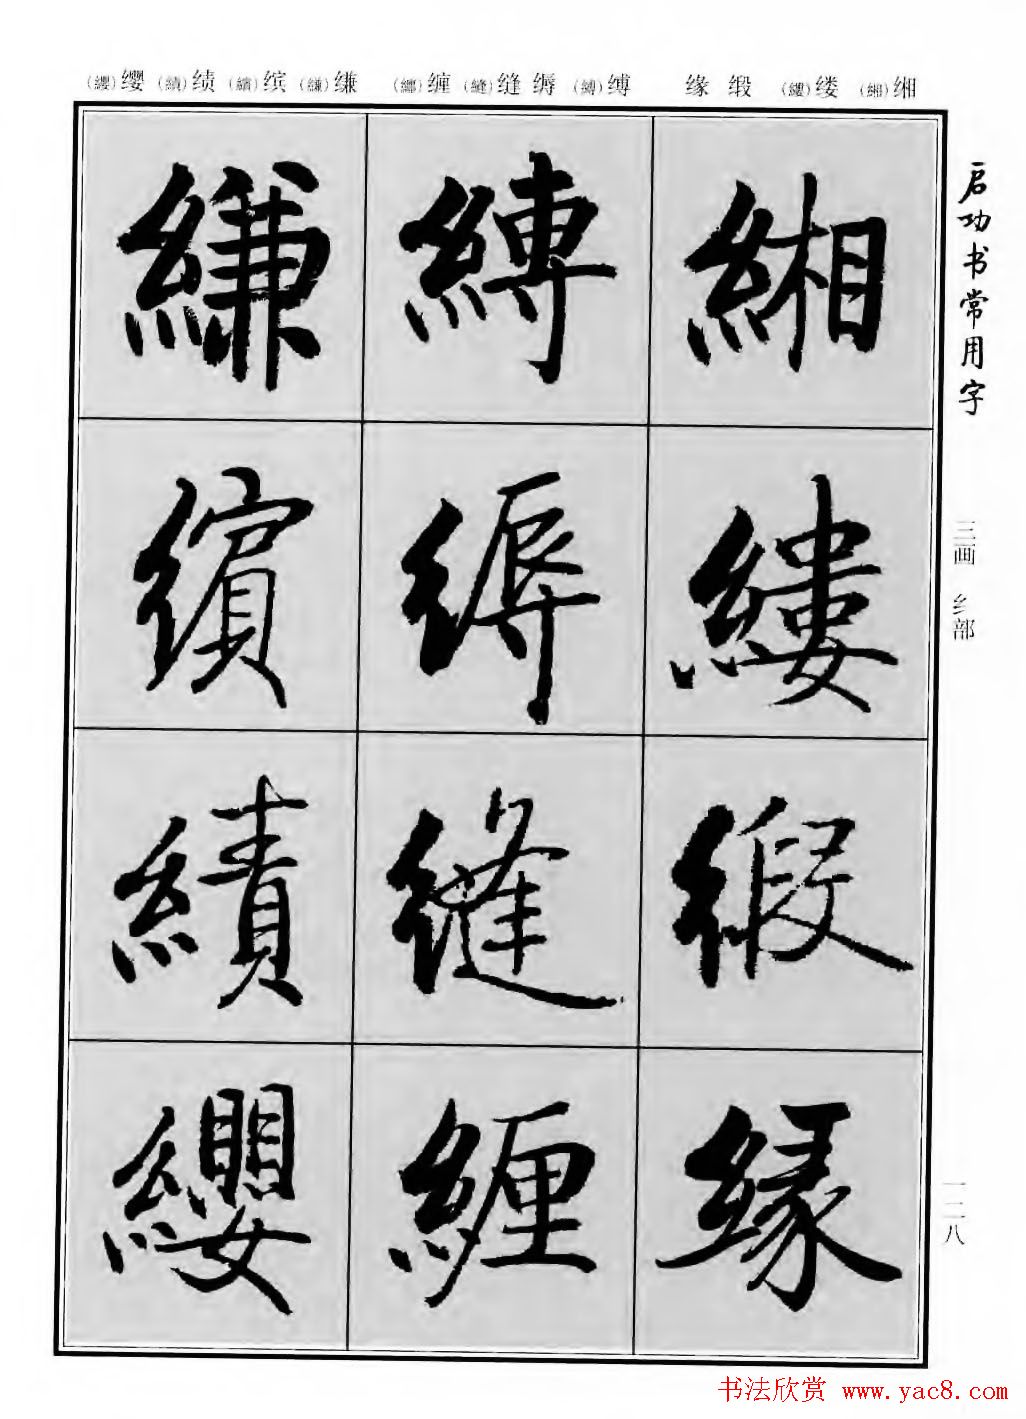 启功书常用字
三画 纟部
一二八
缃(緗) 缕(縷) 缎 缘
缚(縛) 缛 缝(縫) 缠(纏)
缣(縑) 缤(繽) 绩(績) 缨(纓)
緗
縷
緞
緣
縛
縟
縫
纏
縑
繽
績
纓
书法欣赏 www.yac8.com